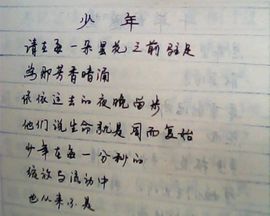 少年
请在每一朵昙花之前驻足
为那芳香暗涌
依依远去的夜晚留步
他们说生命就是周而复始
少年在每一分秒的
绽放与流动中
也从来不是